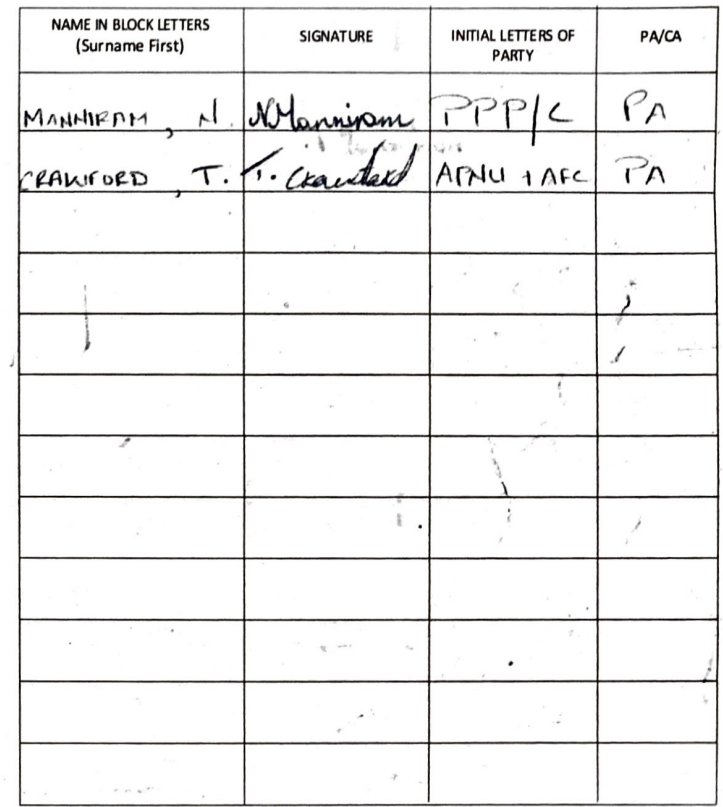 NAME IN BLOCK LETTERS (Surname First) SIGNATURE INITIAL LETTERS OF PARTY PA/CA
MANNIRAM, N. N Manniram PPP/C PA
CRAWFORD, T. T. Crawford APNU + AFC PA